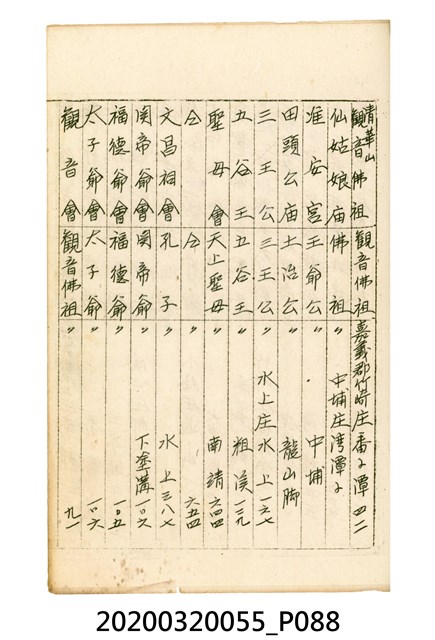 清華山觀音佛祖 觀音佛祖 嘉義郡竹崎庄番子潭 四二
仙姑娘庙 佛祖 〃 中埔庄湾潭子
准安宮 王爺公 〃 中埔
田頭公庙 土治公 〃 龍山脚
三王公 三王公 〃 水上庄水上 一六七
五谷王 五谷王 〃 粗溪 一三九
聖母會 天上聖母 〃 南靖 六四四
仝 仝 〃 六五四
文昌祠會 孔子 〃 水上 三八七
関帝爺會 関帝爺 〃 下塗溝 一〇六
福德爺會 福德爺 〃 一〇五
太子爺會 太子爺 〃 一〇六
觀音會 觀音佛祖 〃 九一
20200320055_P088